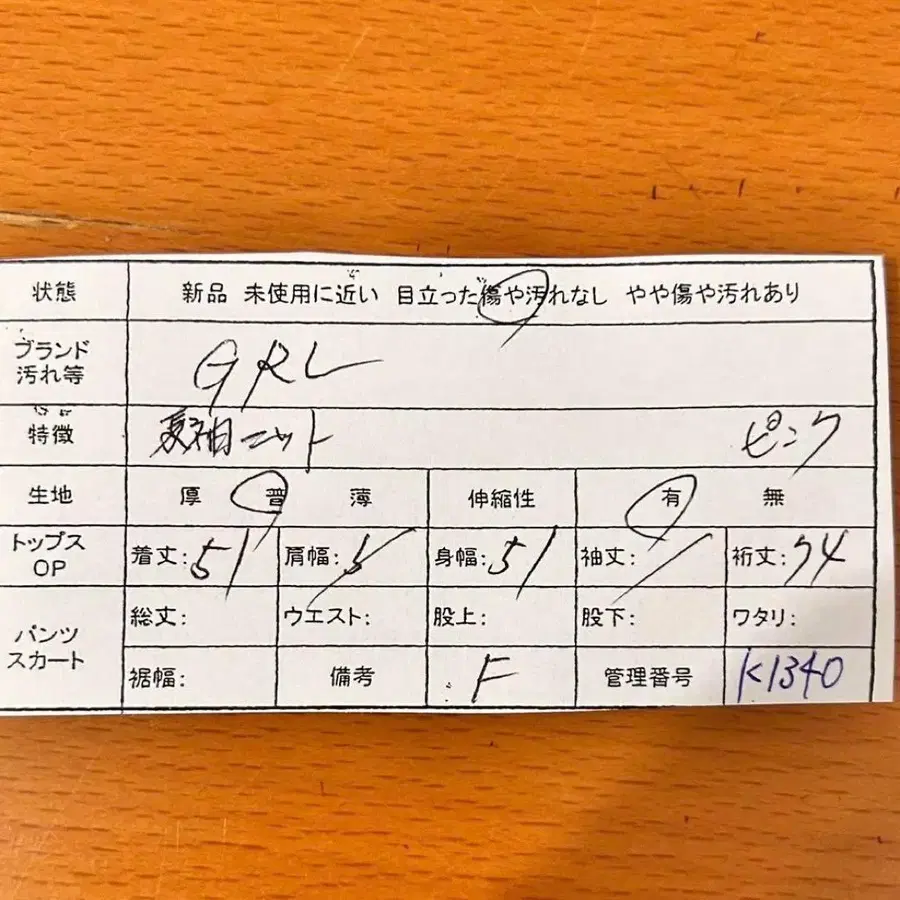 状態 新品 未使用に近い 目立った傷や汚れなし やや傷や汚れあり
ブランド
汚れ等 GRL
特徴 長袖ニット ピンク
生地 厚 普 薄 伸縮性 有 無
トップス
OP 着丈:51 肩幅: 身幅:51 袖丈: 裄丈:74
パンツ
スカート 総丈: ウエスト: 股上: 股下: ワタリ:
裾幅: 備考 F 管理番号 K1340